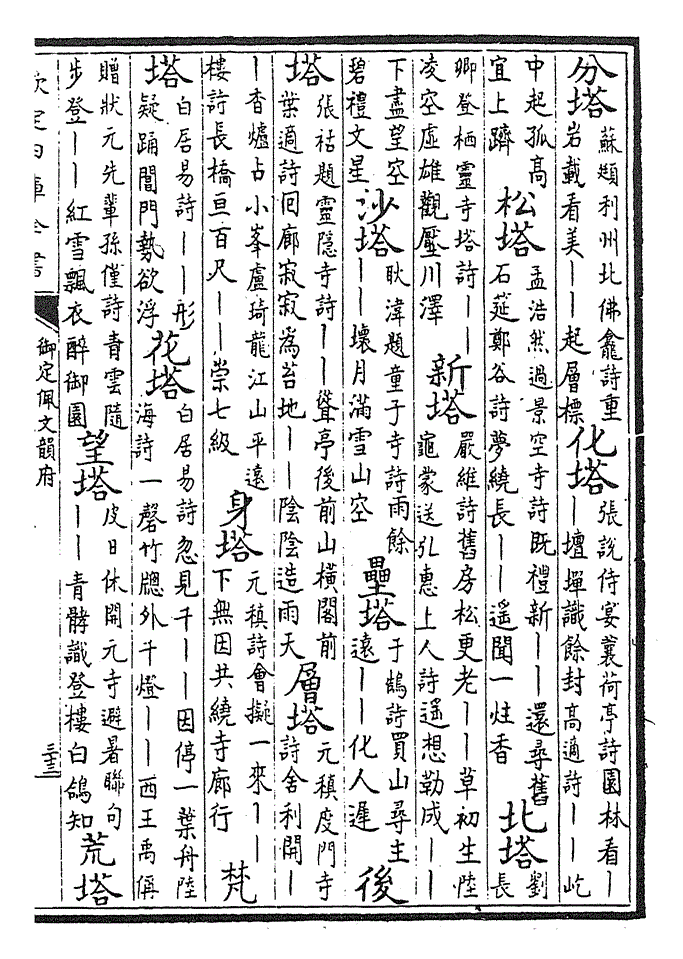 分塔蘇頲利州北佛龕詩重岩載看美——起層標化塔張說侍宴蘘荷亭詩園林看——壇墠識餘封高適詩——屹
中起孤高宜上躋松塔孟浩然過景空寺詩既禮新——還尋舊石筵鄭谷詩夢繞長——遙聞一炷香北塔劉長
卿登栖靈寺塔詩——凌空虛雄觀壓川澤新塔嚴維詩舊房松更老——草初生陸龜蒙送弘惠上人詩遙想勒成——
下盡望空碧禮文星沙塔耿湋題童子寺詩雨餘——壞月滿雪山空壘塔于鵠詩買山尋主遠——化人遲後
塔張祜題靈隱寺詩——聳亭後前山橫閣前葉適詩回廊寂寂為苔地——陰陰造雨天層塔元稹度門寺詩舍利開—
—香爐占小峯盧琦龍江山平遠樓詩長橋亘百尺——崇七級身塔元稹詩會擬一來——下無因共繞寺廊行梵
塔白居易詩——形疑踊閶門勢欲浮花塔白居易詩忽見千——因停一葉舟陸海詩一磬竹牕外千燈——西王禹偁
贈狀元先輩孫僅詩青雲隨步登——紅雪飄衣醉御園望塔皮日休開元寺避暑聯句——青髇識登樓白鴿知荒塔
欽定四庫全書
御定佩文韻府
三十三